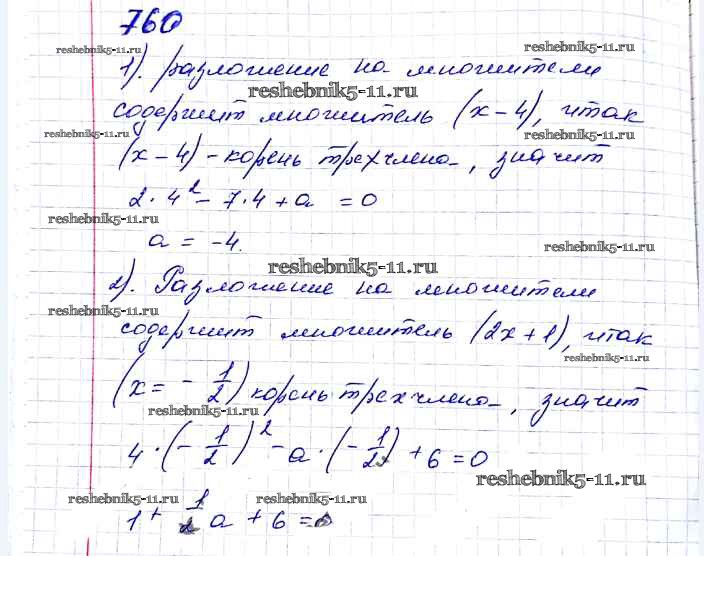 760
reshebnik5-11.ru reshebnik5-11.ru
1). разложение на множители
reshebnik5-11.ru
содержит множитель (x – 4), итак
reshebnik5-11.ru reshebnik5-11.ru
(x – 4) – корень трехчлена, значит
2 · 4² – 7 · 4 + a = 0
reshebnik5-11.ru
a = –4.
reshebnik5-11.ru
reshebnik5-11.ru
2). Разложение на множители
reshebnik5-11.ru
содержит множитель (2x + 1), итак
reshebnik5-11.ru
(x = – 1/2) корень трехчлена, значит
reshebnik5-11.ru
4 · (– 1/2)² – a · (– 1/2) + 6 = 0
reshebnik5-11.ru
reshebnik5-11.ru reshebnik5-11.ru
1 + 1/2 a + 6 = 0